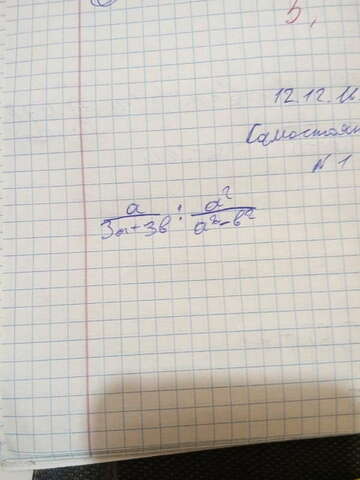 5,
12.12.
Самостоят
N 1
a/(3a+3b) : a²/(a²-b²)